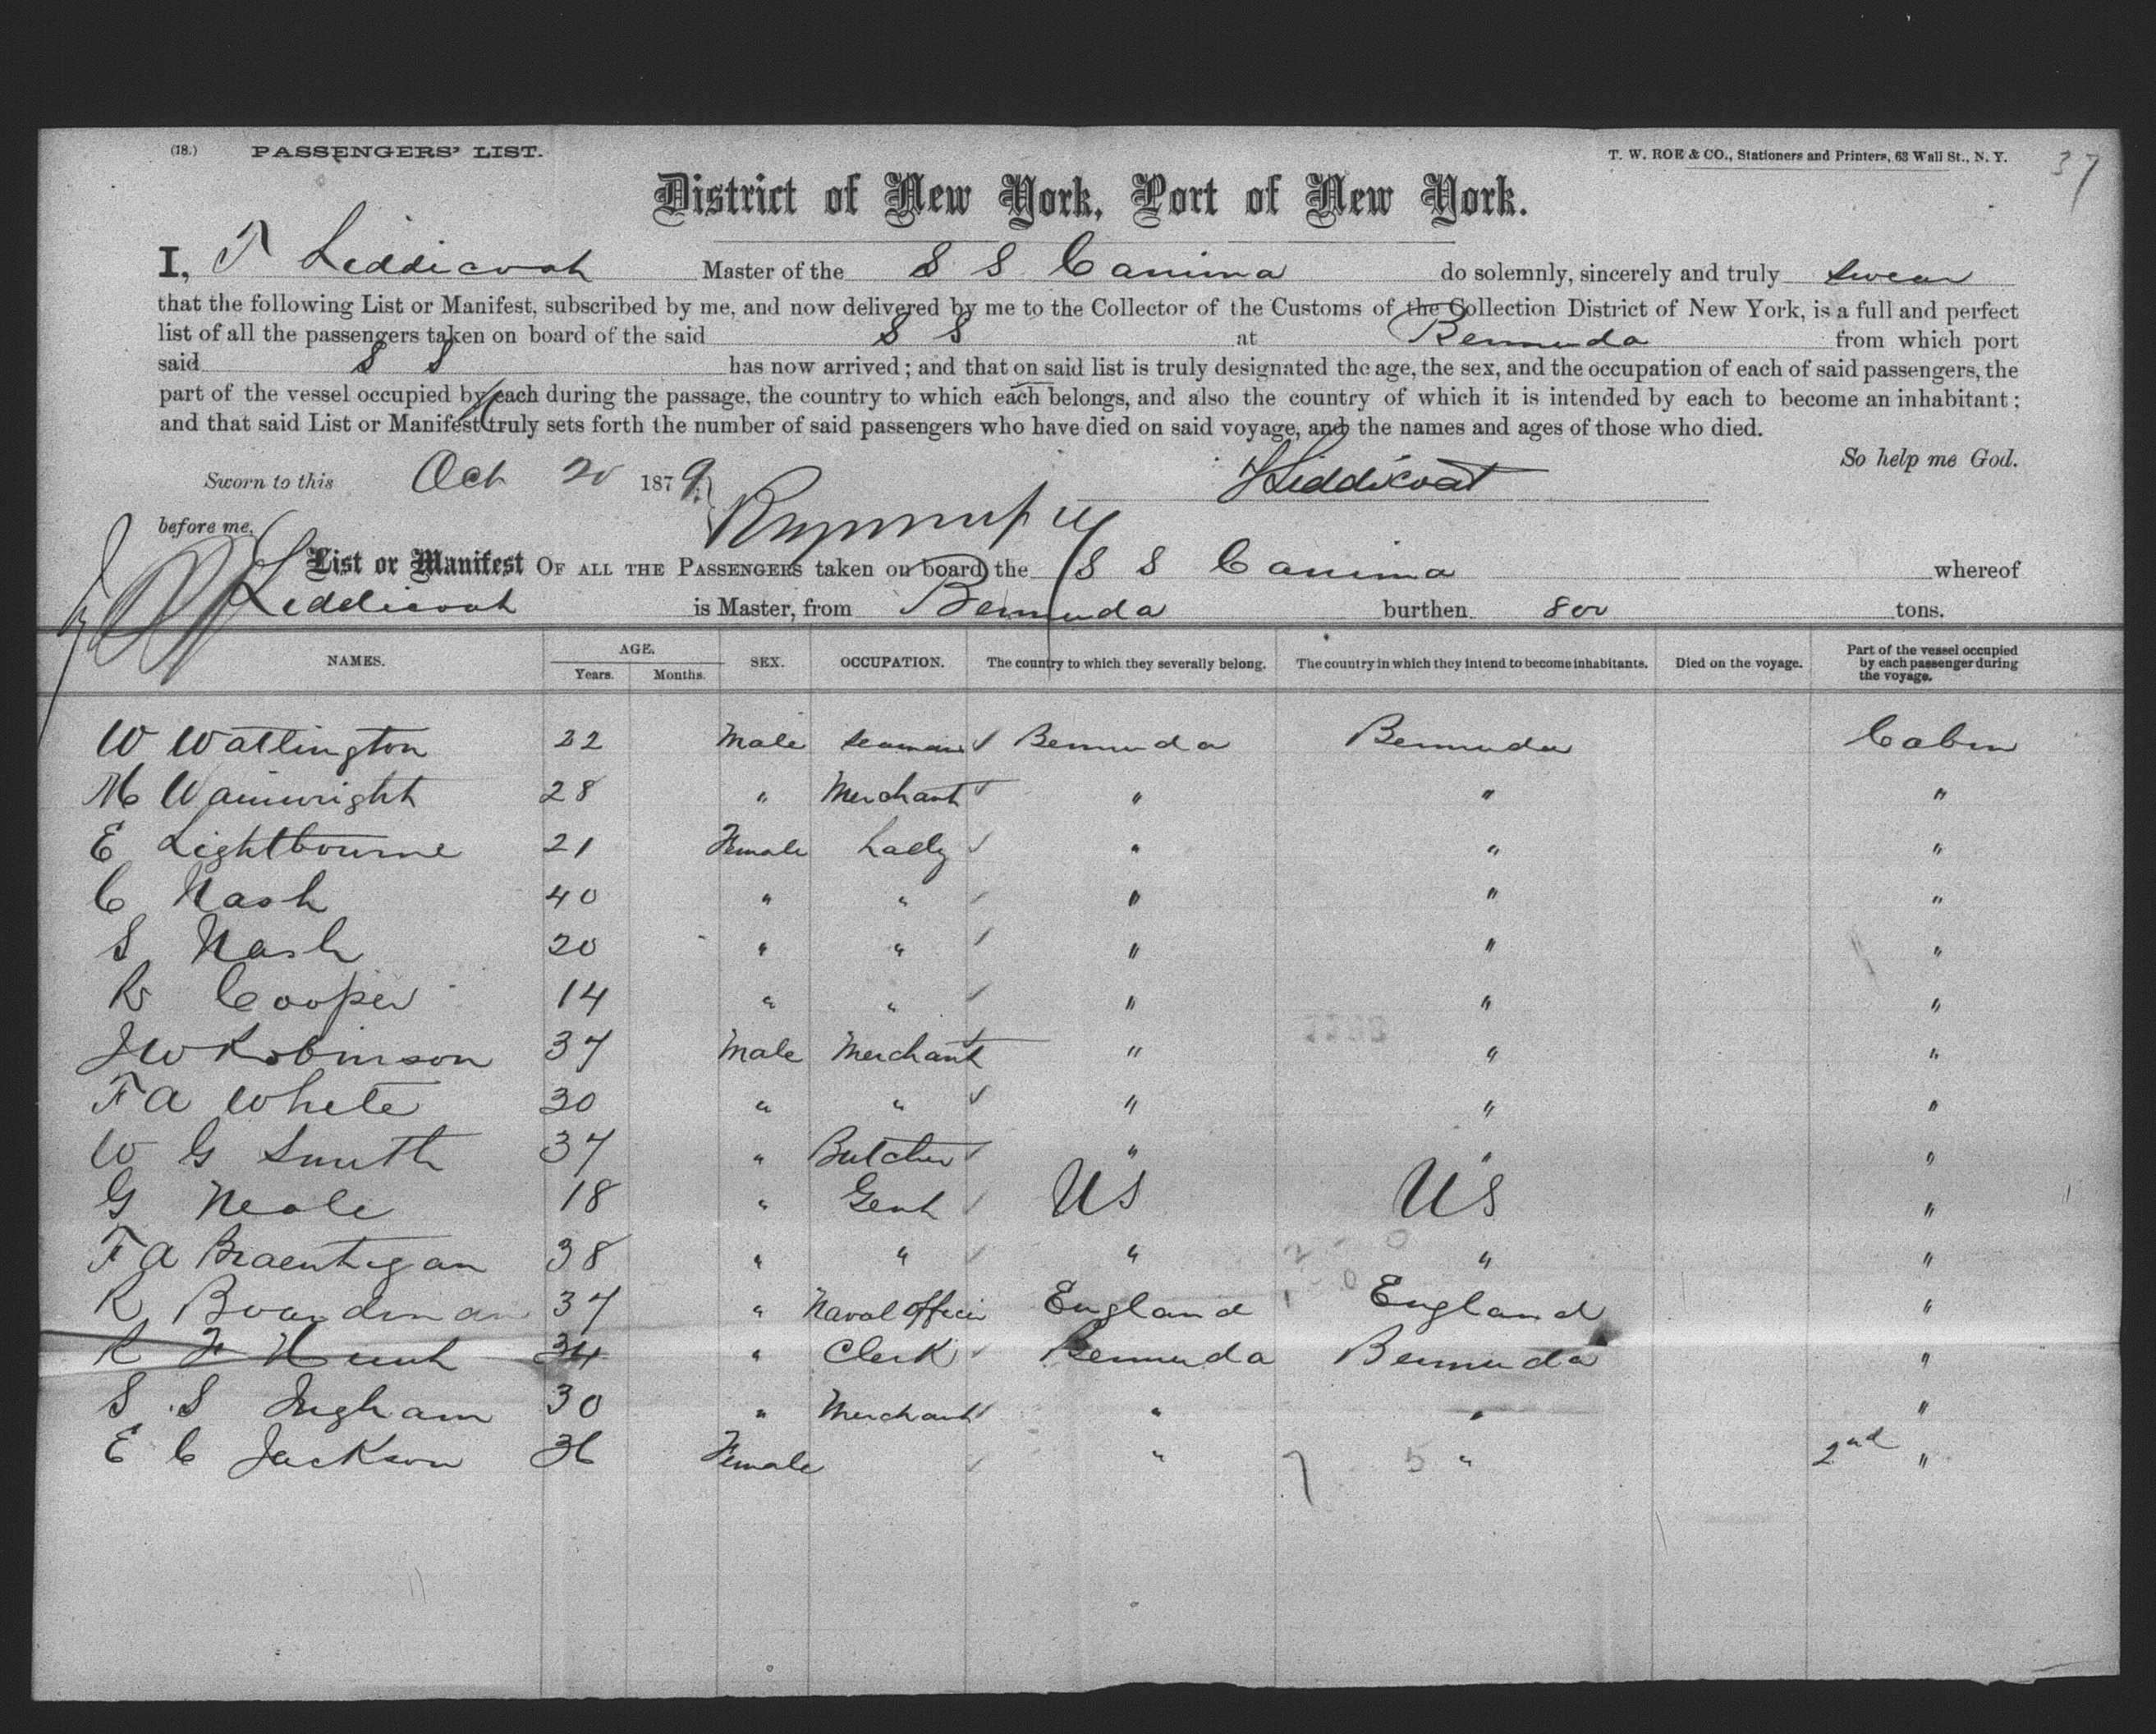 (18.) PASSENGERS' LIST. T. W. ROE & CO., Stationers and Printers, 63 Wall St., N. Y. 37
District of New York, Port of New York.
I, T Liddicoat Master of the S S Canima do solemnly, sincerely and truly swear
that the following List or Manifest, subscribed by me, and now delivered by me to the Collector of the Customs of the Collection District of New York, is a full and perfect
list of all the passengers taken on board of the said S S at Bermuda from which port
said S S has now arrived; and that on said list is truly designated the age, the sex, and the occupation of each of said passengers, the
part of the vessel occupied by each during the passage, the country to which each belongs, and also the country of which it is intended by each to become an inhabitant;
and that said List or Manifest truly sets forth the number of said passengers who have died on said voyage, and the names and ages of those who died.
So help me God.
Sworn to this Oct 20 1879. Liddicoat
before me.
List or Manifest OF ALL THE PASSENGERS taken on board the S S Canima whereof
Liddicoat is Master, from Bermuda burthen 800 tons.
NAMES. AGE. Years. Months. SEX. OCCUPATION. The country to which they severally belong. The country in which they intend to become inhabitants. Died on the voyage. Part of the vessel occupied by each passenger during the voyage.
W Watlington 22 Male Seaman Bermuda Bermuda Cabin
M Wainwright 28 " Merchant " " "
E Lightbourne 21 Female Lady " " "
C Nash 40 " " " " "
S Nash 20 " " " " "
R Cooper 14 " " " " "
J W Robinson 37 Male Merchant " " "
F A White 30 " " " " "
W G Smith 37 " Butcher " " "
G Neale 18 " Gent US US "
F A 38 " " " " "
R Boardman 37 " Naval officer England England "
R 34 " Clerk Bermuda Bermuda "
S S Ingham 30 " Merchant " " "
E C Jackson 36 Female " " 2nd "